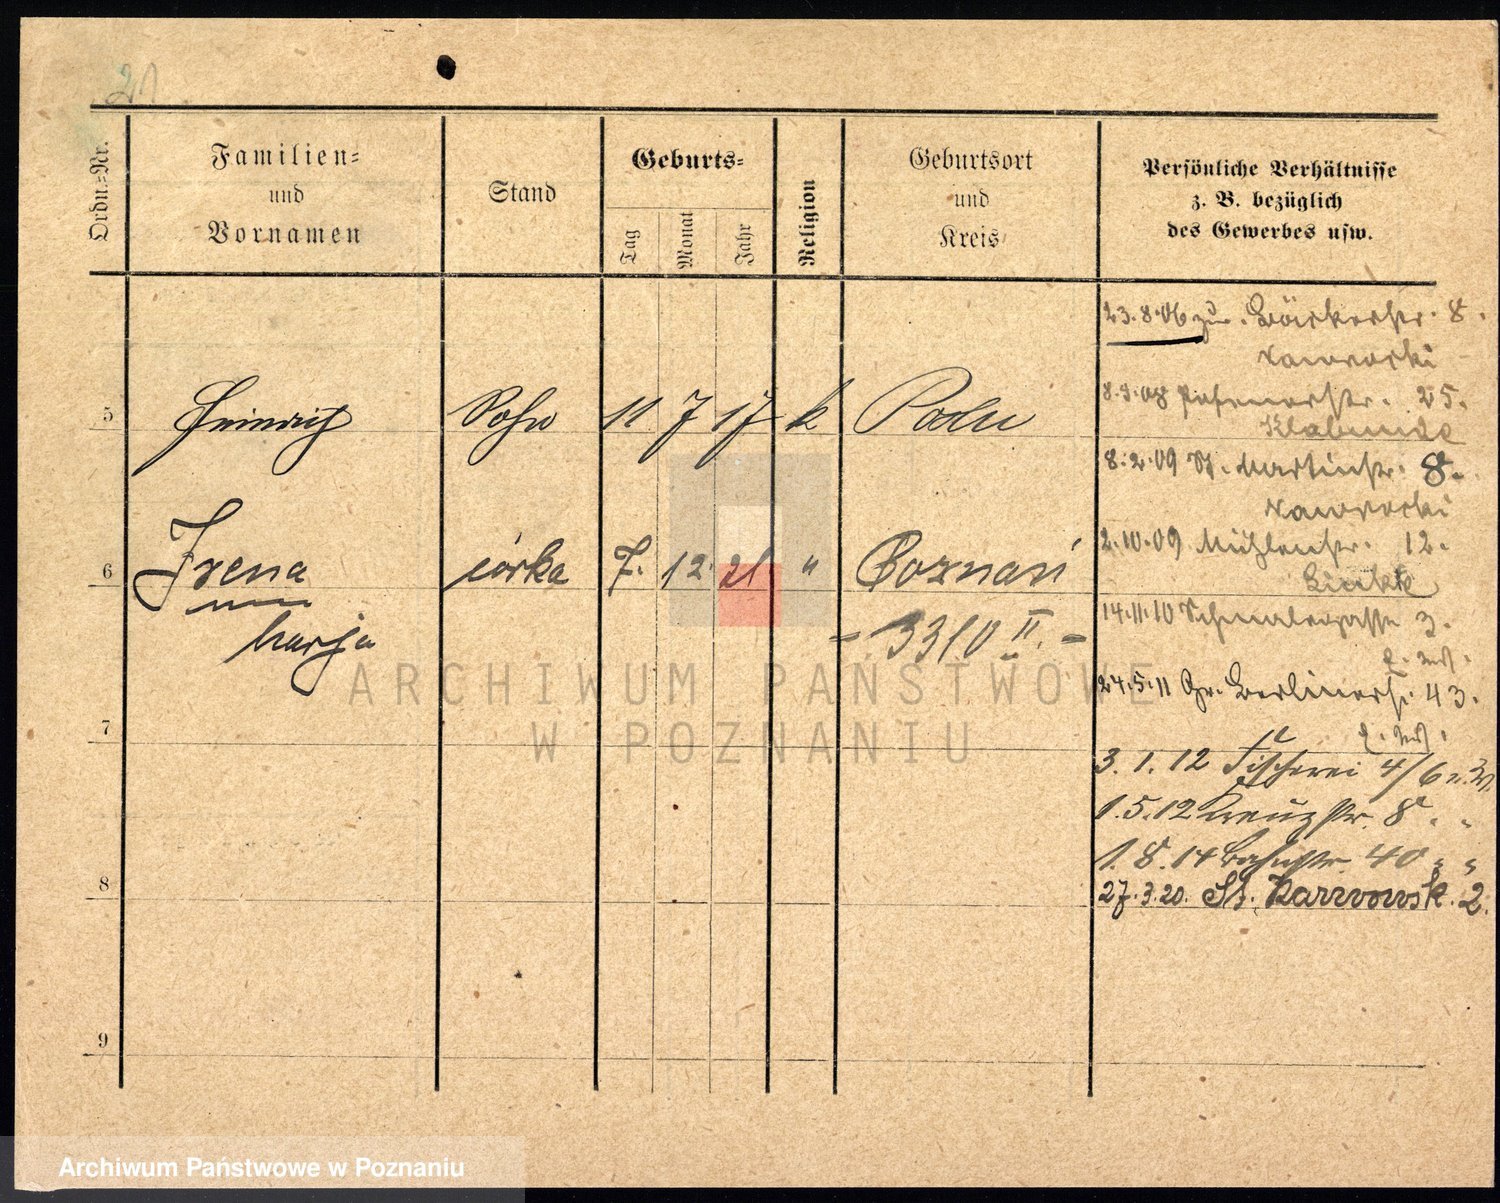 21
Ordn.-Nr.
Familien-
und
Vornamen
Stand
Geburts-
Tag
Monat
Jahr
Religion
Geburtsort
und
Kreis
Persönliche Verhältnisse
z. B. bezüglich
des Gewerbes usw.
23.8.06 zu Bäckerstr. 8.
Jaworski
5 Heinrich Sohn 11 7 17 k Posen
8.9.08 Posenerstr. 25.
Klabunde
8.2.09 St. Martinstr. 8.
Jaworski
6 Irena córka 7. 12. 21 " Poznań
2.10.09 Mühlenstr. 12.
Linke
Marja
- 3310 II. -
14.11.10 Schmalegasse 3.
24.5.11 Gr. Berlinerstr. 43.
7
3.1.12 Fischerei 4/6
1.5.12 Kreuzstr. 8 " "
1.8.14 Bahnstr. 40 " "
8
27.3.20. St. 2.
9
ARCHIWUM PAŃSTWOWE
W POZNANIU
Archiwum Państwowe w Poznaniu